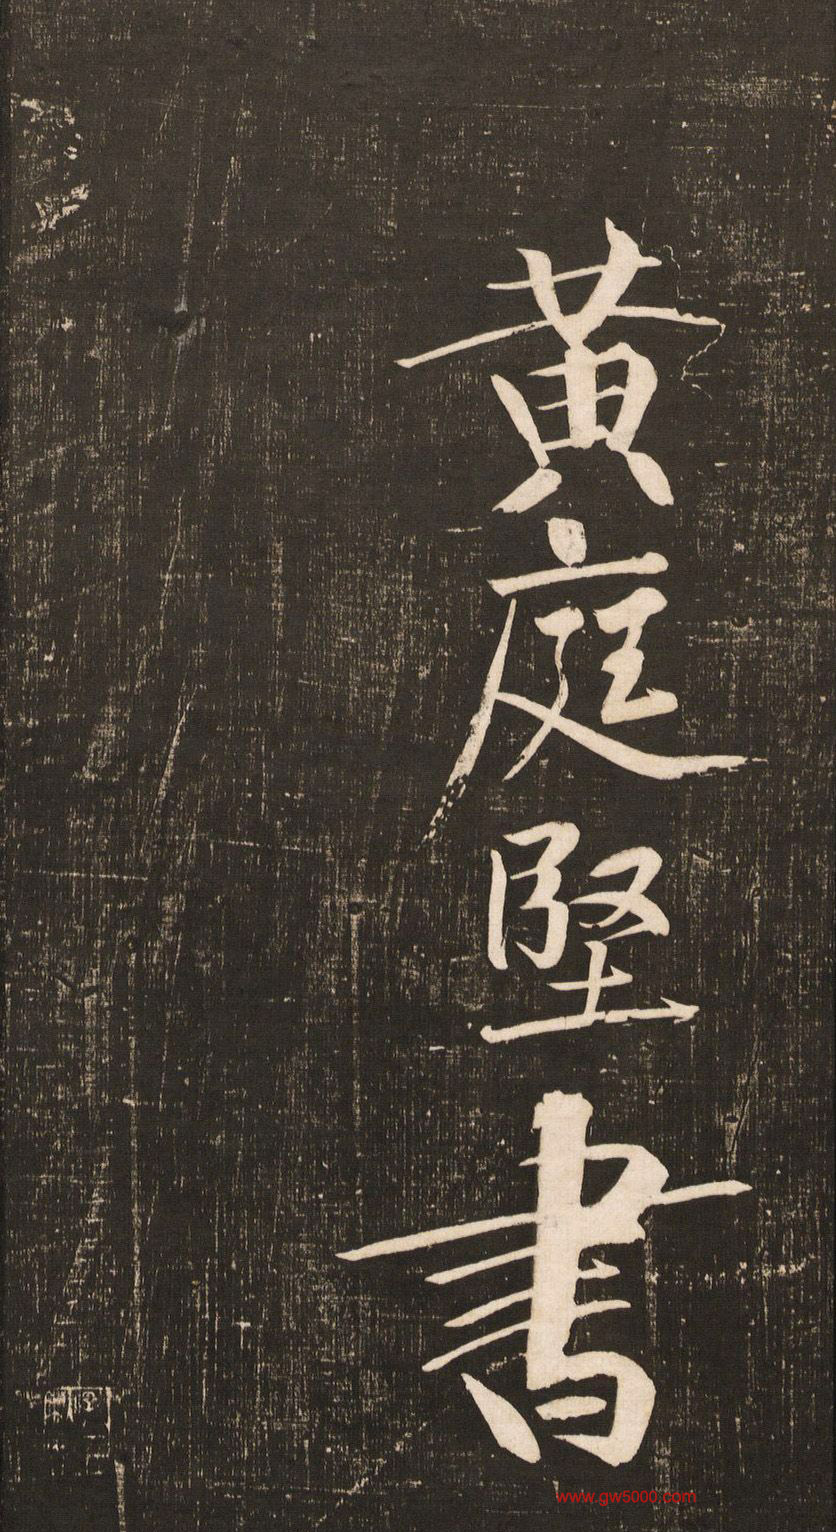 黄庭堅書
www.gw5000.com